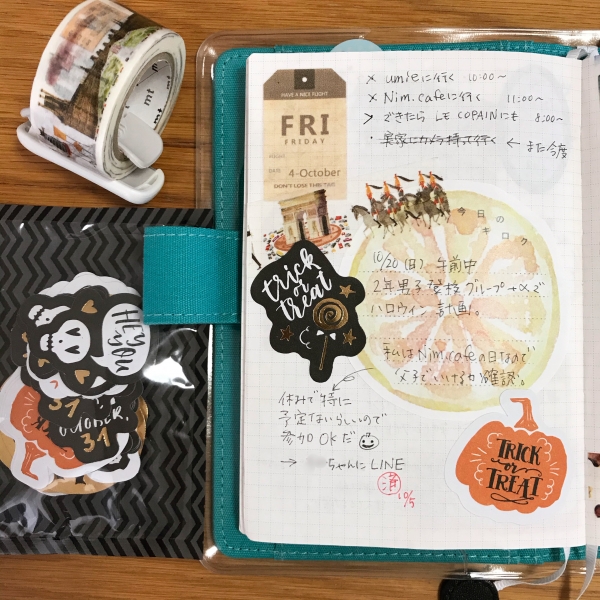 mt
HAVE A NICE FLIGHT
FRI
FRIDAY
DATE 4-October
DON'T LOSE THIS TAG
× umieに行く 10:00～
× Nim.cafeに行く 11:00～
> できたら LE COPAINにも 8:00～
・実家にカメラ持って行く ← また今度
今日の
キロク
10/20(日) 午前中
2年男子登校グループ+αで
ハロウィン計画!。
私はNim.cafeの日なので
父子でいけるか確認。
休みで特に
予定ないらしいので
参加OKだ
→ ちゃんにLINE
済 10/5
trick
or
treat
TRICK
or
TREAT
HEY
YOU
31
OCTOBER
31